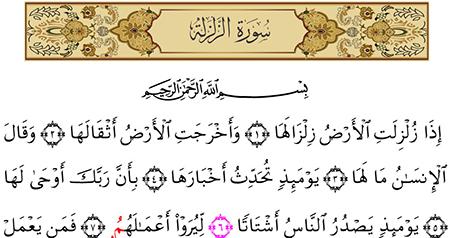 سُورَةُ الزَّلْزَلَةِ
بِسْمِ ٱللَّهِ ٱلرَّحْمَٰنِ ٱلرَّحِيمِ
إِذَا زُلْزِلَتِ ٱلْأَرْضُ زِلْزَالَهَا ﴿١﴾ وَأَخْرَجَتِ ٱلْأَرْضُ أَثْقَالَهَا ﴿٢﴾ وَقَالَ
ٱلْإِنسَٰنُ مَا لَهَا ﴿٣﴾ يَوْمَئِذٍ تُحَدِّثُ أَخْبَارَهَا ﴿٤﴾ بِأَنَّ رَبَّكَ أَوْحَىٰ لَهَا
﴿٥﴾ يَوْمَئِذٍ يَصْدُرُ ٱلنَّاسُ أَشْتَاتًا ﴿٦﴾ لِّيُرَوْا۟ أَعْمَٰلَهُمُ ﴿٧﴾ فَمَن يَعْمَلْ